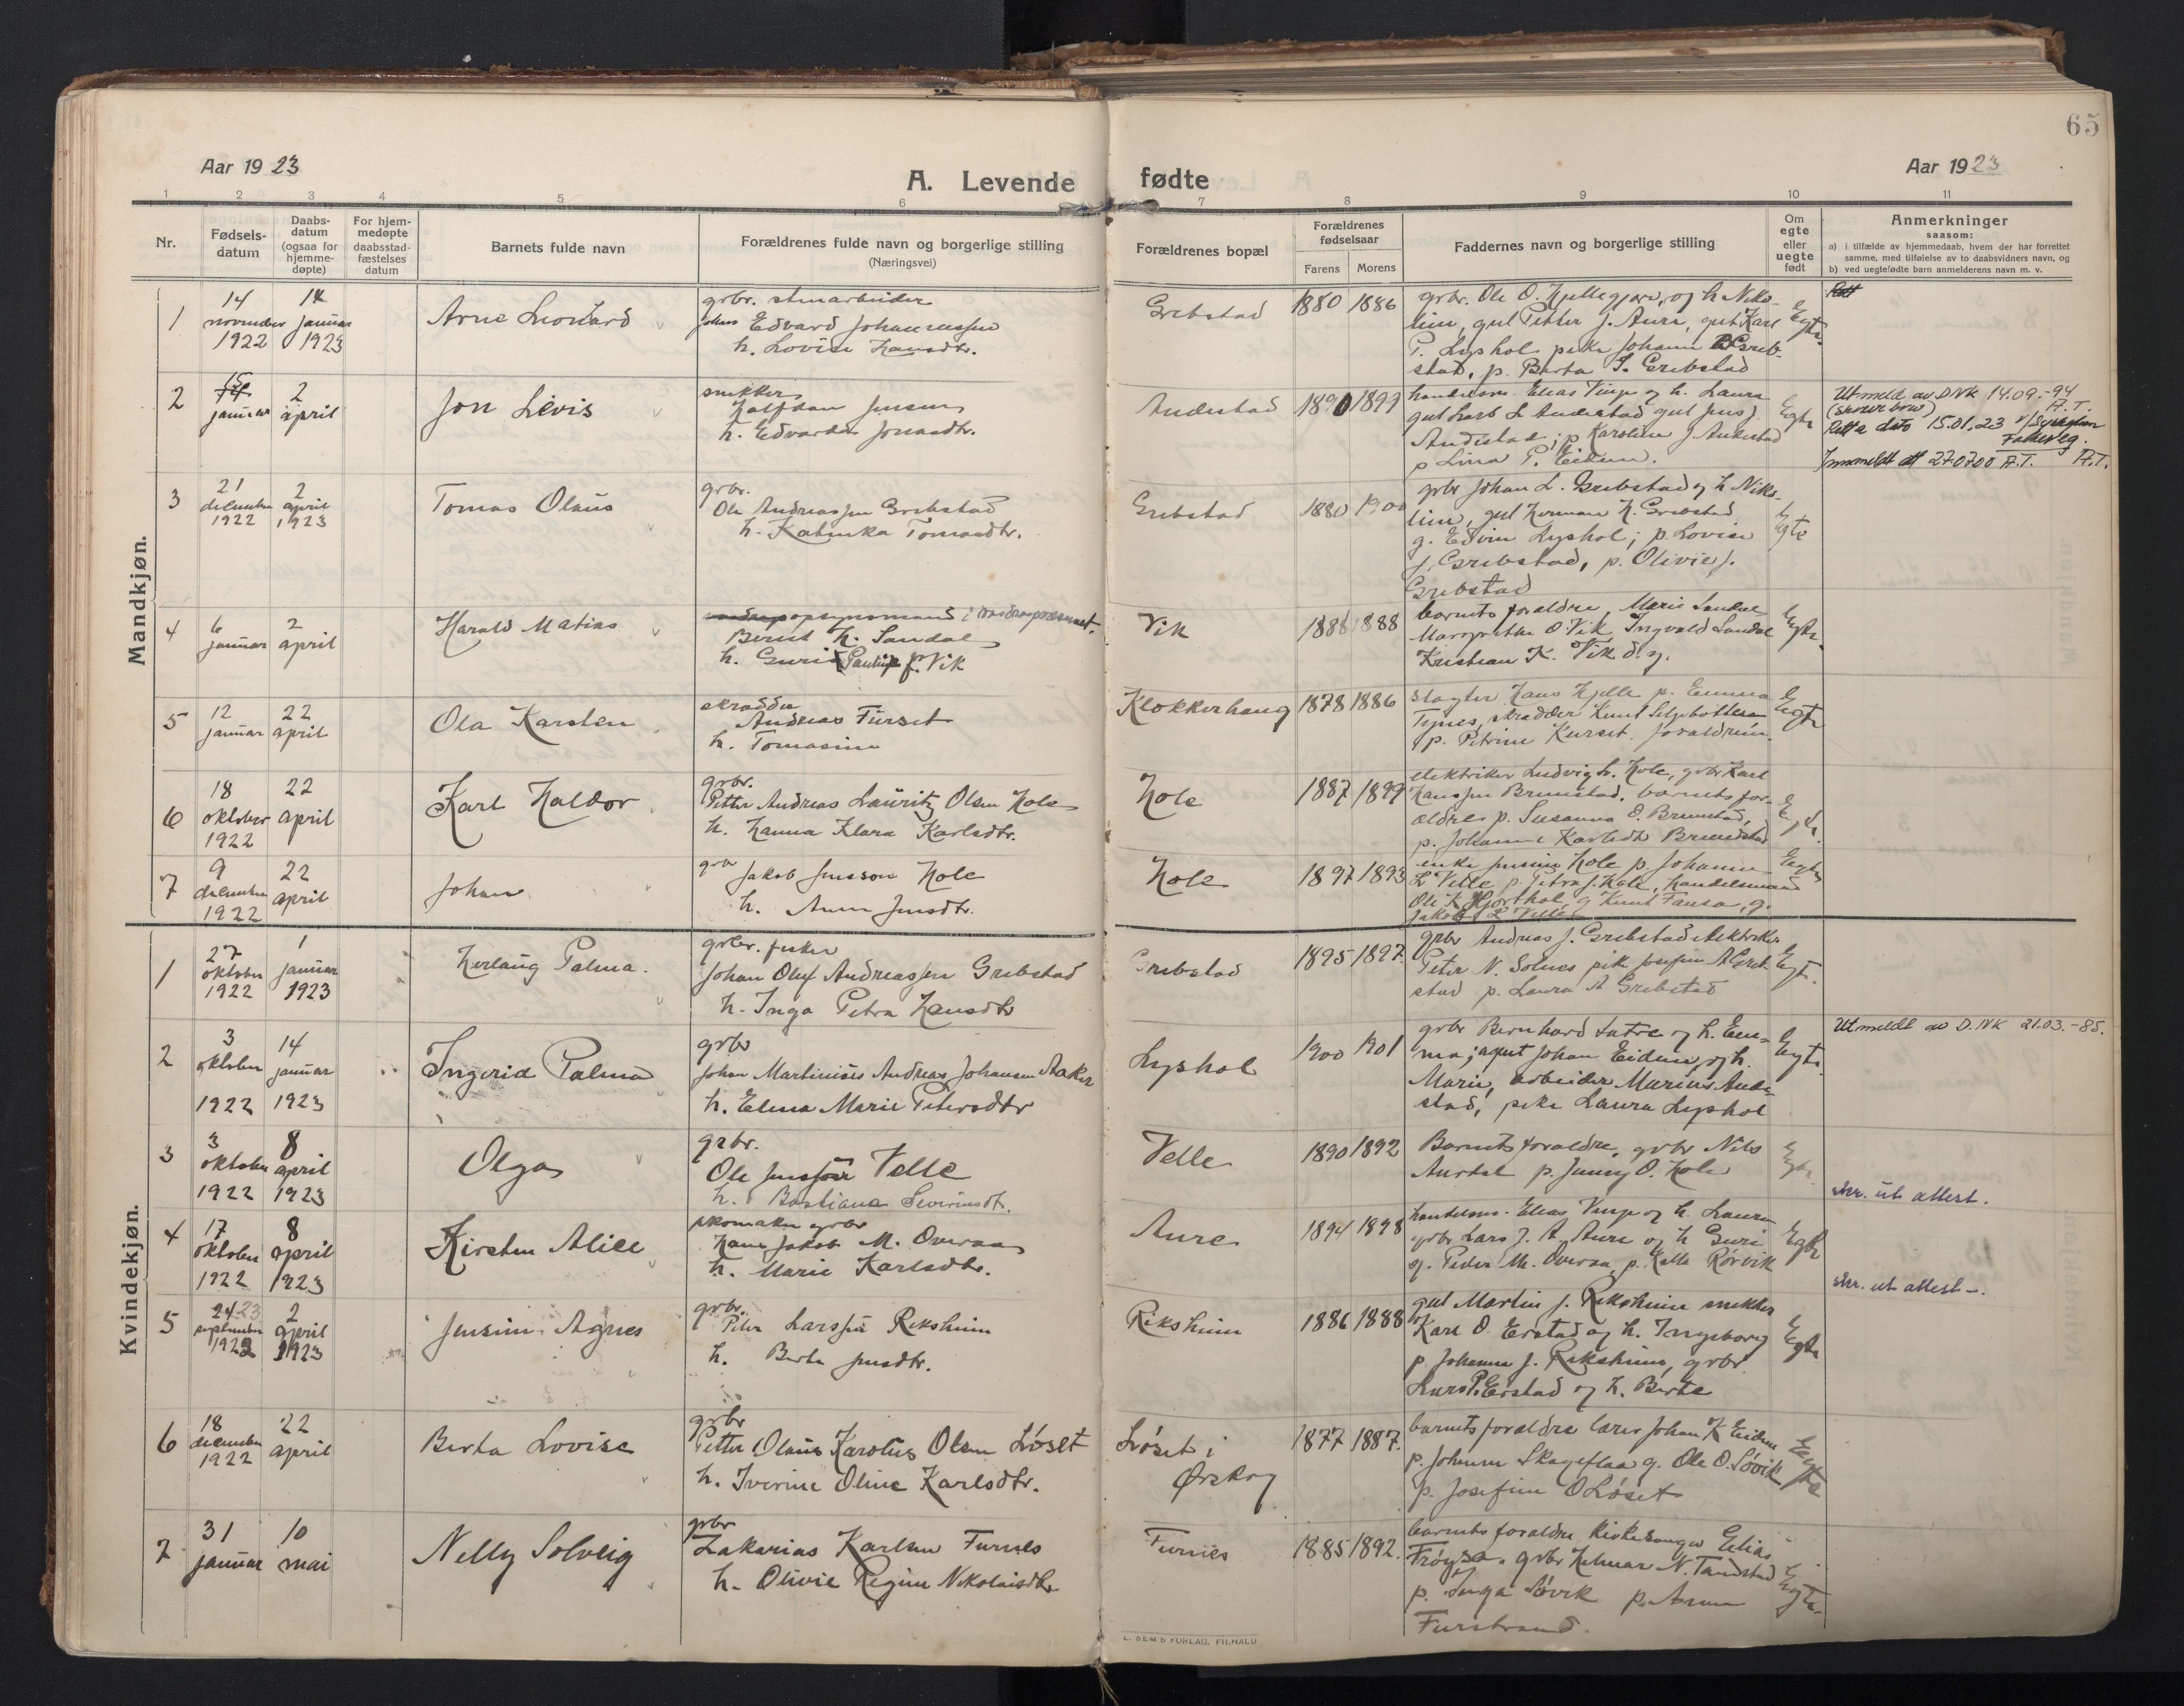 65
Aar 1923
A. Levende fødte
Aar 1923
1 2 3 4 5 6 7 8 9 10 11
Nr.
Fødsels-
datum
Daabs-
datum
(ogsaa for
hjemme-
døpte)
For hjem-
medøpte
daabsstad-
fæstelses
datum
Barnets fulde navn
Forældrenes fulde navn og borgerlige stilling
(Næringsvei)
Forældrenes bopæl
Forældrenes
fødselsaar
Farens Morens
Faddernes navn og borgerlige stilling
Om
egte
eller
uegte
født
Anmerkninger
saasom:
a) i tilfælde av hjemmedaab, hvem der har forrettet
samme, med tilføielse av to daabsvidners navn, og
b) ved uegtefødte barn anmelderens navn m. v.
Mandkjøn.
1
14 november 1922
14 januar 1923
Arne Leonhard
grbr. stenarbeider
Johan Edvard Johannessen
h. Lovise Hansdtr.
Grebstad
1880 1886
grbr. Ole O. Hjellegjære, og h. Niko-
line, gut Petter J. Aure, gut Karl
P. Lyshol pike Johanne Greb-
stad, p. Berta J. Grebstad
Egte
2
15 januar
2 april
Jon Levis
snekker
Halfdan Jensen
h. Edvarda Jonasdtr.
Andestad
1890 1899
handelsm. Elias Vinje og h. Laura
gut Lars L. Andestad gut Jens J.
Andestad; p. Karoline J. Andestad
p Lina P. Eidem.
Egte
Utmeld av DNK 14.09.-94
A.T.
Retta dato 15.01.23
Innmeldt att 270700 A.T. A.T.
3
21 december 1922
2 april 1923
Tomas Olaus
grbr.
Ole Andreassen Grebstad
h. Katinka Tomasdtr.
Grebstad
1880 1900
grbr Johan L. Grebstad og h Niko-
line, gut Herman H. Grebstad
g. Edvin Lyshol; p. Lovise
J. Grebstad, p. Olivie J.
Grebstad
Egte
4
6 januar
2 april
Harald Matias
opsynsmand i vasdragsvæsenet.
Bernt H. Sandal
h. Guri Pauline f. Vik
Vik
1886 1888
barnets forældre, Marie Sandal
Margrethe O. Vik, Ingvald Sandal
Kristian K. Vik d. y.
Egte
5
12 januar
22 april
Ola Karsten
skrædder
Andreas Furset
h. Tomasine
Klokkerhaug
1878 1886
slagter Hans Hjelle p. Emma
Tynes, skrædder Knut Seljebotten
p. Petrine Kurset. forældrene.
Egte
6
18 oktober 1922
22 april
Karl Haldor
grbr.
Petter Andreas Lauritz Olsen Hole
h. Hanna Klara Karlsdtr.
Hole
1887 1899
elektriker Ludvig L. Hole, grbr Karl
Hanssen Brunstad, barnets for-
ældre p. Susanna O. Brunstad,
p. Johanne Karlsdtr Brunstad
Egte
7
9 december 1922
22 april
Johan
grbr
Jakob Jensson Hole
h. Anne Jensdtr.
Hole
1897 1893
enke Jensine Hole p. Johanne
L Velle p. Petra J. Hole, handelsmand
Ole K Hjorthol, g Knut Fausa, g.
Jakob L Velle
Egte
Kvindekjøn.
1
27 oktober 1922
1 januar 1923
Herlaug Palma.
grbr. fisker
Johan Oluf Andreassen Grebstad
h. Inga Petra Hansdtr
Grebstad
1895 1897.
grbr Andreas J. Grebstad elektriker
Peter N. Solnes pike Josefine A Greb-
stad p. Laura A Grebstad
Egte.
2
3 oktober 1922
14 januar 1923
Ingerid Palma
grbr
Johan Martinius Andreas Johansen Aaker
h. Elena Marie Petersdtr
Lyshol
1900 1901
grbr Bernhard Sætre og h. Em-
ma; agent Johan Eidem, og h.
Marie, arbeider Marius Ande-
stad, pike Laura Lyshol
Egte.
Utmeldt av D.NK 21.03.-85.
3
3 oktober 1922
8 april 1923
Olga
grbr.
Ole Jensson Velle
h. Bastiana Severinsdt.
Velle
1890 1892
Barnets forældre, grbr Nils
Aurdal p. Jenny O. Hole
Egte
skr. ut attest.
4
17 oktober 1922
8 april 1923
Kirsten Alice
skomaker grbr
Hans Jakob M. Overaa
h. Marie Karlsdtr.
Aure
1894 1898
handelsm. Elias Vinje og h. Laura
grbr Lars J. A. Aure og h Guri
g. Peder M. Overaa, p. Kalla Rørvik
Egte
skr. ut attest -.
5
24 23 september 1922
2 april 1923
Jensine Agnes
grbr.
Peter Larssen Riksheim
h. Berte Jensdtr.
Riksheim
1886 1888
gut Martin J. Riksheim snekker
Karl O. Erstad og h. Ingeborg
p. Johanne J. Riksheim, grbr
Lars P. Erstad og h. Berte
Egte
6
18 december 1922
22 april
Berta Lovise
grbr
Petter Olaus Karolus Olsen Løset
h. Iverine Oline Karlsdtr.
Løset i
Ørskog
1877 1887.
barnets forældre lærer Johan K Eidem
p. Johanne Skageflaa g. Ole O. Søvik
p. Josefine O Løset
Egte
7
31 januar
10 mai
Nelly Solveig
grbr
Zakarias Karlsen Furnes
h. Olivie Regine Nikolaisdtr
Furnes
1885 1892.
barnets forældre kirkesanger Elias
Frøysa, grbr Helmar N. Tandstad
p. Inga Søvik p. Anna
Furstrand.
Egte.
L. SEM'S FORLAG, FR.HALD